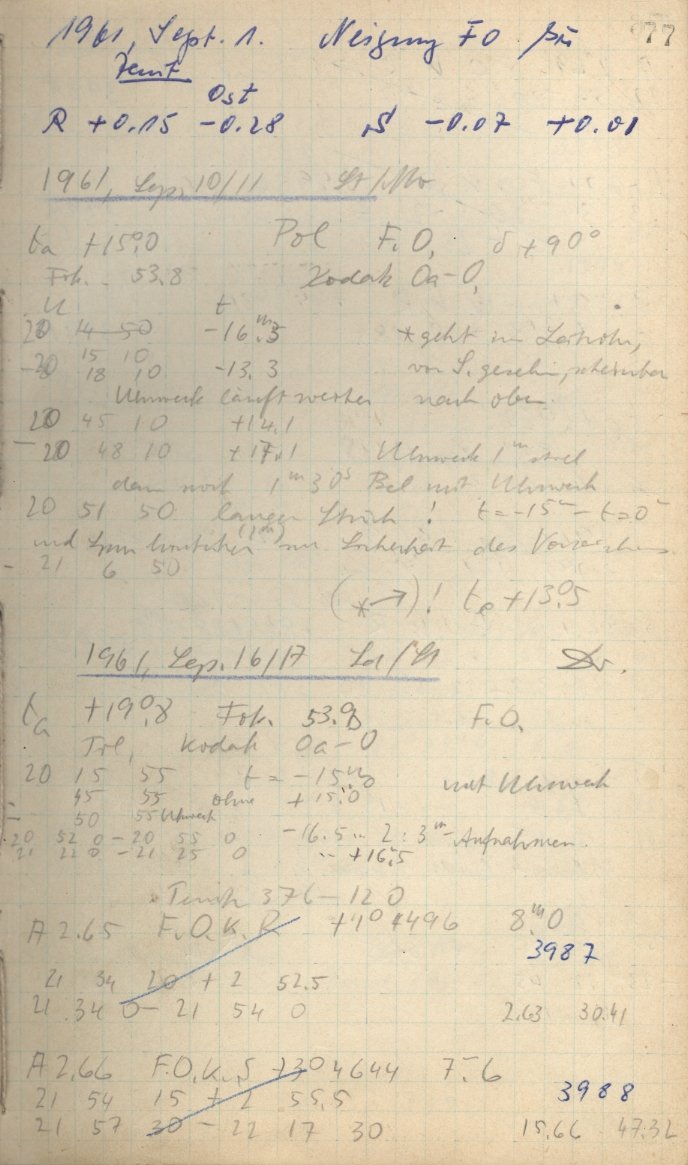 77
1961, Sept. 1. Neigung FO
Ost
R +0.15 -0.28 S -0.07 +0.01
1961, Sep. 10/11 St/
ta +15°.0 Pol F.O. δ +90°
Fok. 53.8 Kodak Oa-O,
U t
20 14 50 -16.m3 * geht im
15 10
-20 18 10 -13.3 von S. gesehen, scheinbar
Uhrwerk läuft weiter nach oben.
20 45 10 +14.1
-20 48 10 +17.1 Uhrwerk 1m
dann noch 1m30s Bel mit Uhrwerk
20 51 50 langer Strich! t=-15m - t=0
und zur Sicherheit des
- 21 6 50
(*→)! te +13°.5
1961, Sep. 16/17 /St
ta +19°.8 Fok. 53.8 F.O.
Pol, Kodak Oa-O
20 15 55 t = -15m.0 mit Uhrwerk
45 55 ohne +15.0
- 50 55 Uhrwerk
20 52 0 - 20 55 0 -16.5 2: 3m-Aufnahmen.
21 22 0 - 21 25 0 +16.5
376-120
A 2.65 F.O.K.R +4°4496 8m.0
3987
21 34 20 + 2 52.5
21 34 0 - 21 54 0 2.63 30.41
A 2.66 F.O.K.S +3°4644 7m.6
21 54 15 + 2 55.5 3988
21 57 30 - 22 17 30 15.66 47.32